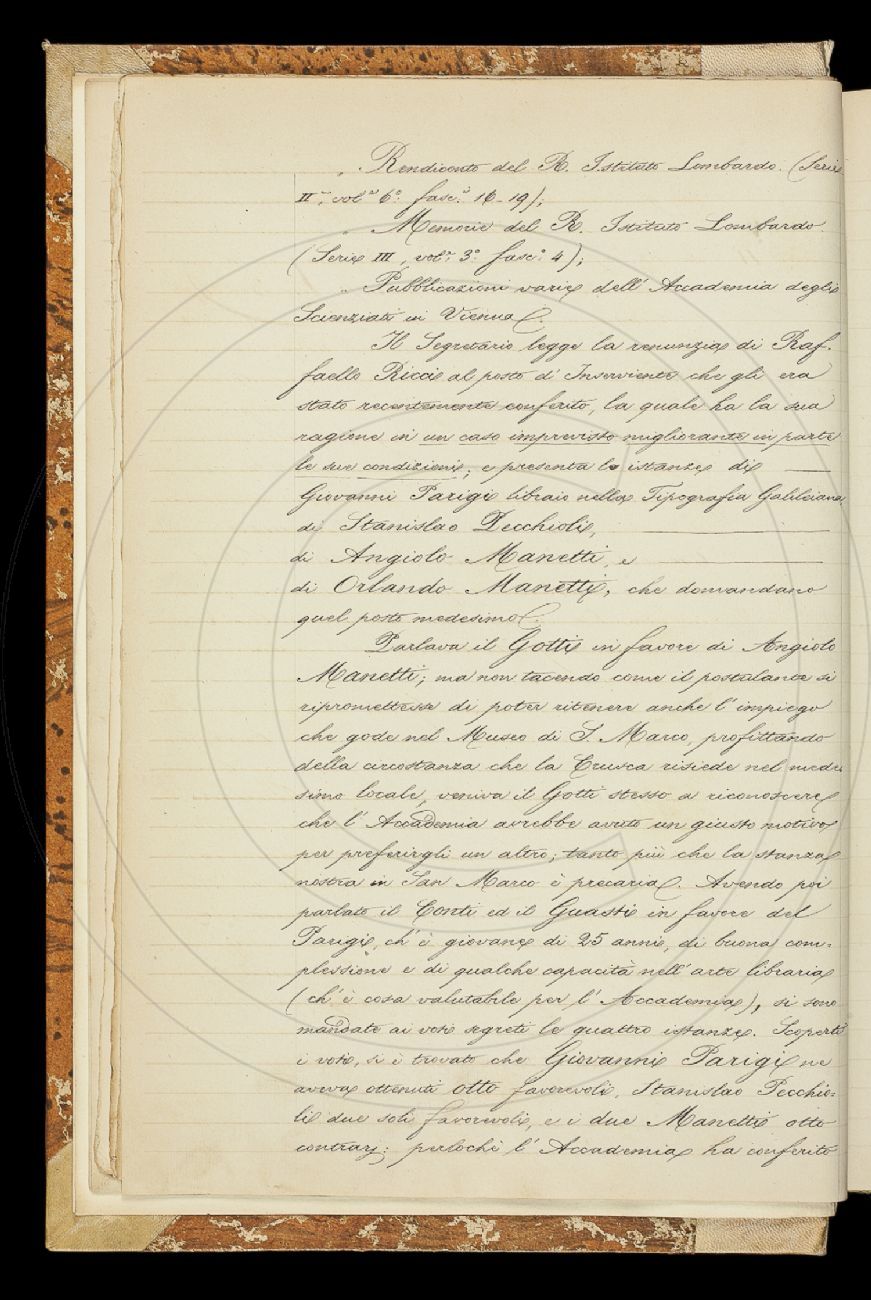 „ Rendiconto del R. Istituto Lombardo. (Serie
II.ª, vol.e 6.º fasc.i 16-19);
„ Memorie del R. Istituto Lombardo
(Serie III, vol.e 3.º fasc.o 4);
„ Pubblicazioni varie dell'Accademia degli
Scienziati in Vienna.
Il Segretario legge la renunzia di Raf-
faello Ricci al posto d'Inserviente che gli era
stato recentemente conferito, la quale ha la sua
ragione in un caso imprevisto migliorante in parte
le sue condizioni; e presenta le istanze di
Giovanni Parigi libraio nella Tipografia Galileiana
di Stanislao Pecchioli,
di Angiolo Manetti, e
di Orlando Manetti, che domandano
quel posto medesimo.
Parlava il Gotti in favore di Angiolo
Manetti; ma non tacendo come il postulante si
ripromettesse di poter ritenere anche l'impiego
che gode nel Museo di S. Marco, profittando
della circostanza che la Crusca risiede nel mede
simo locale, veniva il Gotti stesso a riconoscere
che l'Accademia avrebbe avuto un giusto motivo
per preferirgli un altro; tanto più che la stanza
nostra in San Marco è precaria. Avendo poi
parlato il Conti ed il Guasti in favore del
Parigi, ch'è giovane di 25 anni, di buona com-
plessione e di qualche capacità nell'arte libraria
(ch'è cosa valutabile per l'Accademia), si sono
mandate ai voti segreti le quattro istanze. Scoperti
i voti, si è trovato che Giovanni Parigi ne
aveva ottenuti otto favorevoli, Stanislao Pecchio-
li due soli favorevoli, e i due Manetti otto
contrarj; perlochè l'Accademia ha conferito